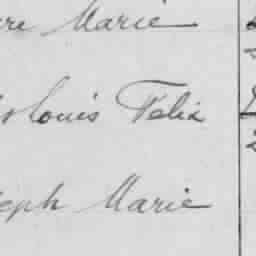 Marie
Louis Felix
eph Marie